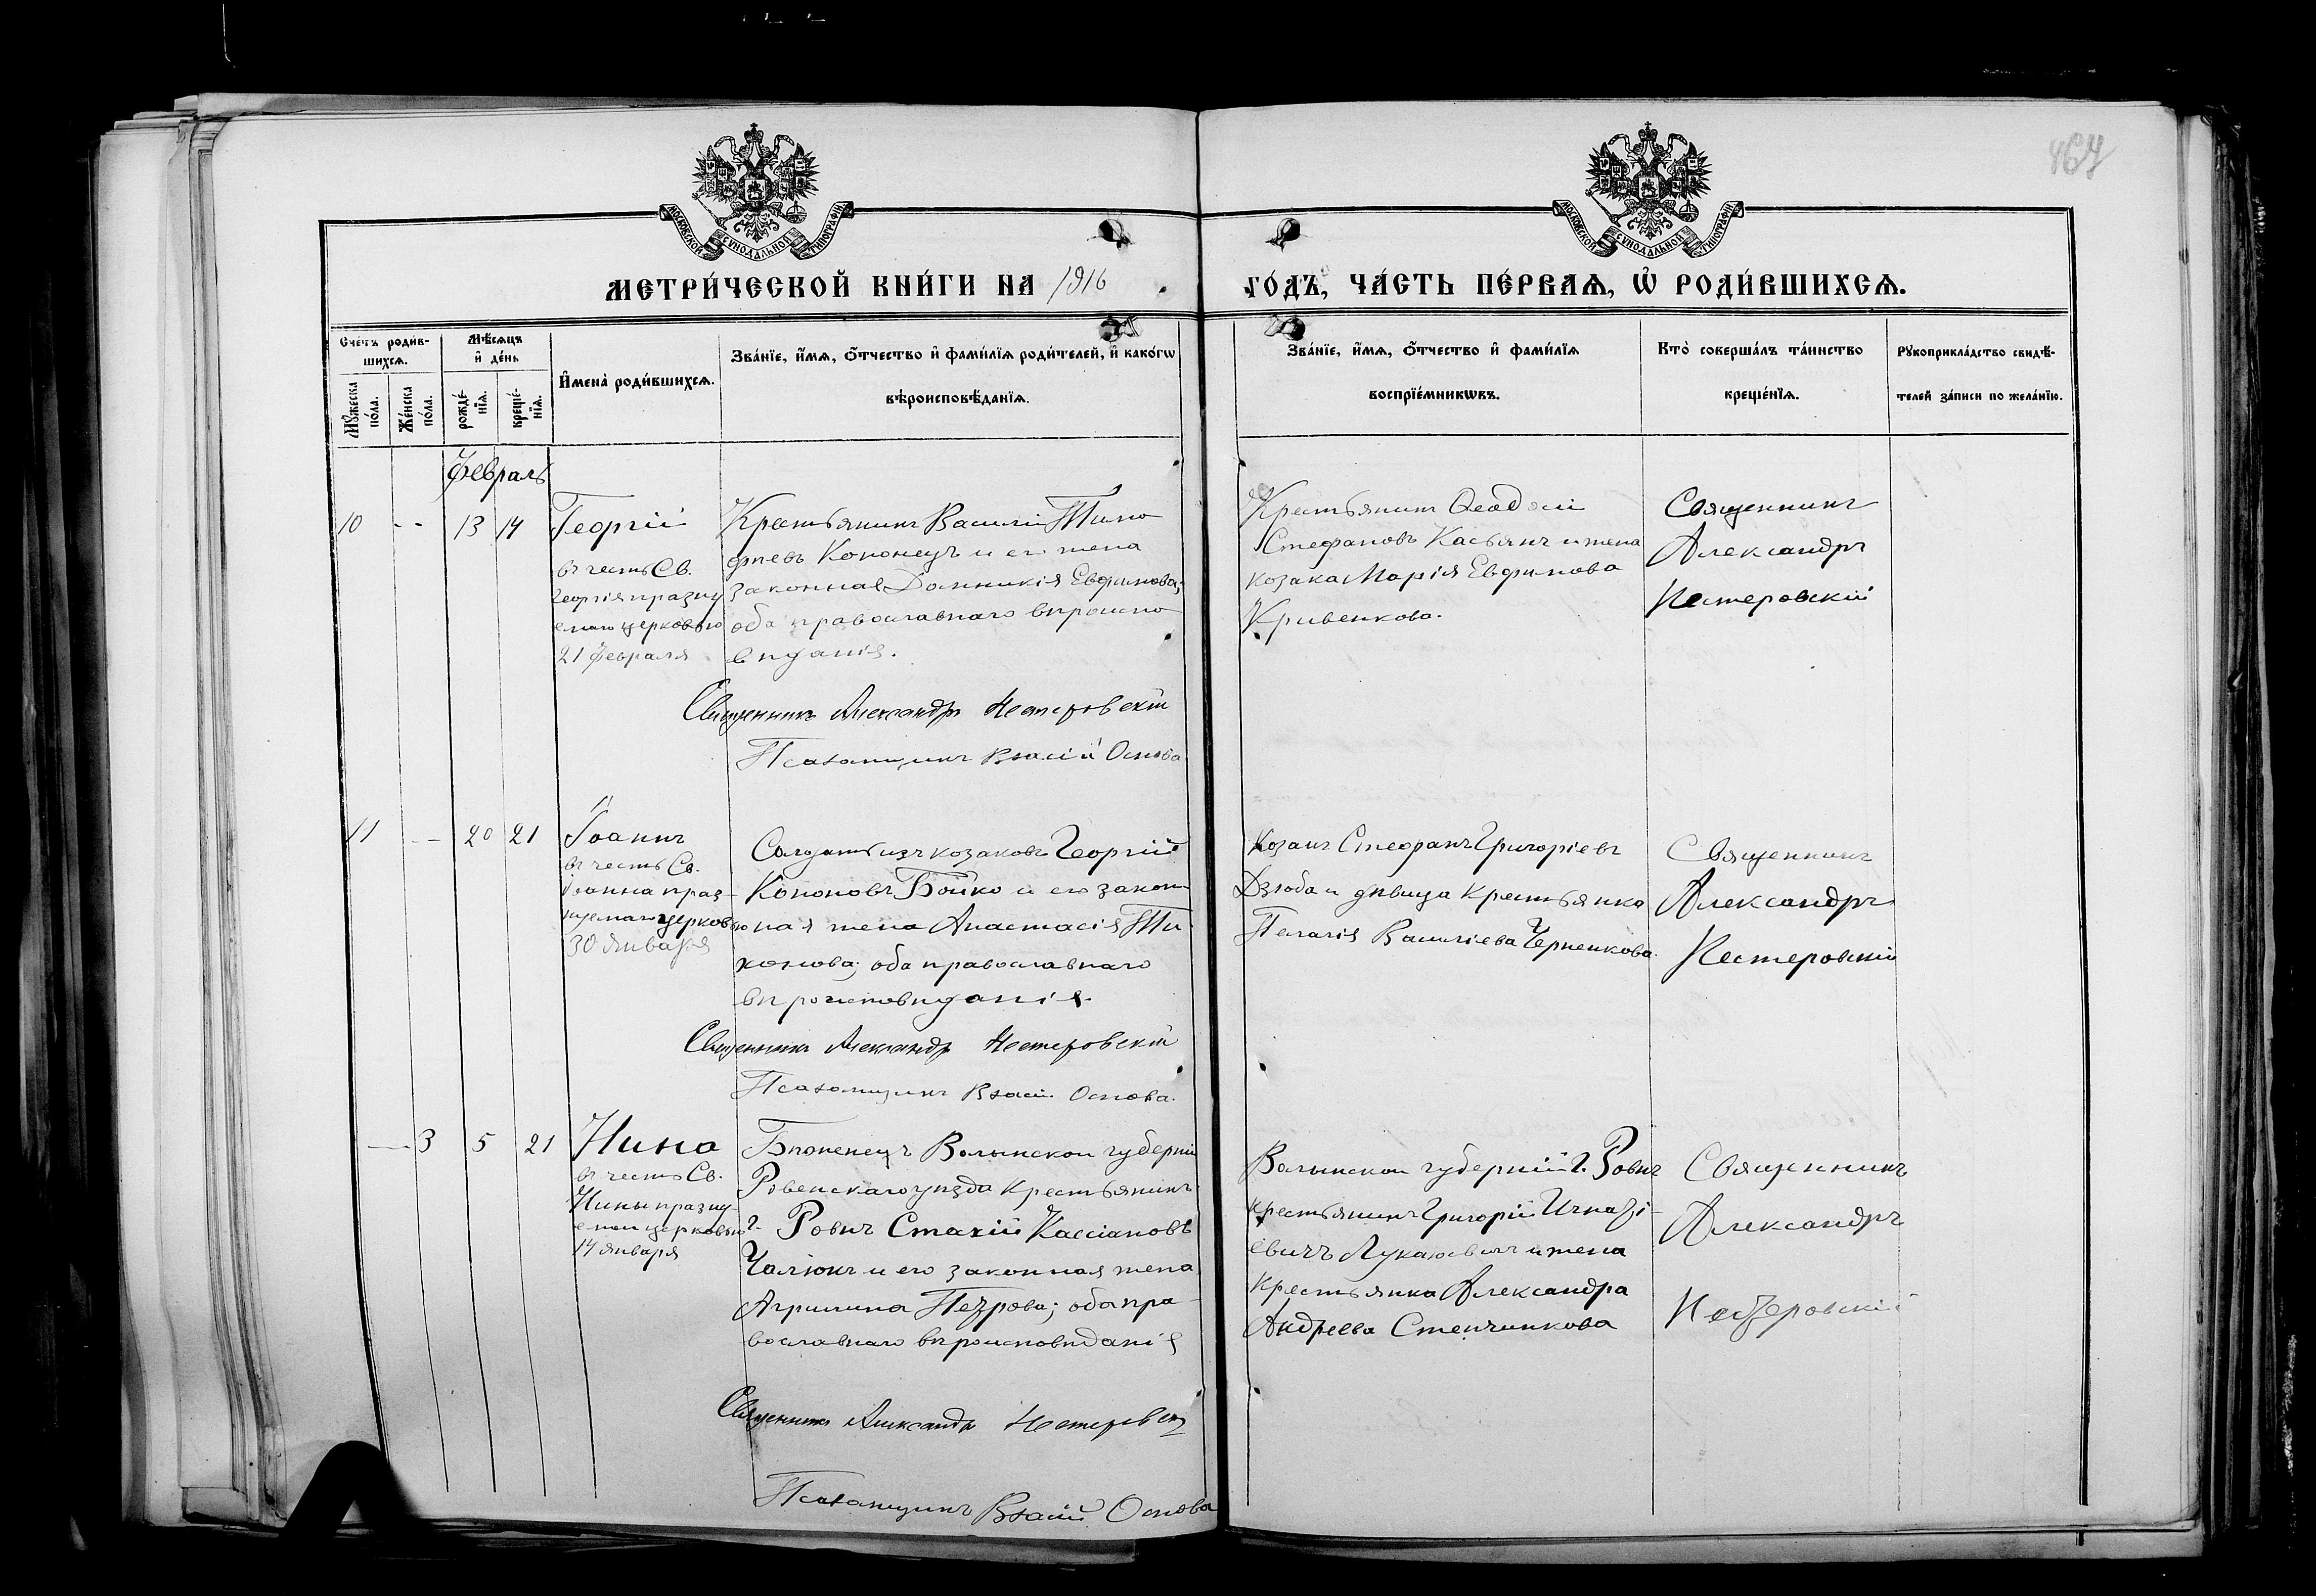 467
МОСКОВСКОЙ СѴНОДАЛЬНОЙ ТИПОГРАФІИ
МОСКОВСКОЙ СѴНОДАЛЬНОЙ ТИПОГРАФІИ
МЕТРИ́ЧЕСКОЙ КНИ́ГИ НА 1916
ГО́ДЪ, ЧА́СТЬ ПЕ́РВАѦ, Ѡ҆ РОДИ́ВШИХСѦ.
Сче́тъ роди́в-
шихсѧ.
Мꙋ́жеска по́ла.
Же́нска по́ла.
Мѣ́сѧцъ
и҆ де́нь
рожде́-
нїѧ.
креще́-
нїѧ.
И҆мена̀ роди́вшихсѧ.
Зва́нїе, и҆́мѧ, ѻ҆́тчество и҆ фами́лїѧ роди́телей, и҆ како́гѡ
вѣроисповѣ́данїѧ.
Зва́нїе, и҆́мѧ, ѻ҆́тчество и҆ фами́лїѧ
воспрїе́мникѡвъ.
Кто̀ соверша́лъ та́инство
креще́нїѧ.
Рꙋкоприкла́дство свидѣ́-
телей за́писи по жела́нїю.
Февраль
10 - - 13 14
Георгій
въ честь Св.
Георгія празну
емаго церковью
21 февраля
Крестьянинъ Василій Тимо
фіевъ Кононецъ и его жена
законная Домникія Евфимова;
оба православнаго вѣроиспо
вѣданія.
Священникъ Александръ Нестеровскій
Псаломщикъ Власій Основа
Крестьянинъ Ѳеодосій
Стефановъ Касьянъ и жена
козака Марія Евфимова
Кривенкова.
Священникъ
Александръ
Нестеровскій
11 - - 20 21
Іоаннъ
въ честь Св.
Іоанна праз-
нуемаго церковью
30 января
Солдатъ изъ козаковъ Георгій
Кононовъ Бойко и его закон
ная жена Анастасія Ти
хонова; оба православнаго
вѣроисповѣданія.
Священникъ Александръ Нестеровскій
Псаломщикъ Власій Основа.
Козакъ Стефанъ Григоріевъ
Дзюба и дѣвица крестьянка
Пелагія Василіева Черненкова.
Священникъ
Александръ
Нестеровскій
— 3 5 21
Нина
въ честь Св.
Нины празну-
емой церковью
14 января
Бѣженецъ Волынской губерніи
Ровенскаго уѣзда крестьянинъ
г. Ровнъ Стахій Кассіановъ
Чалюкъ и его законная жена
Агрипина Петрова; оба пра-
вославнаго вѣроисповѣданія
Священникъ Александръ Нестеровскій
Псаломщикъ Власій Основа
Волынской губерніи г. Ровнъ
крестьянинъ Григорій Игнаті-
евичъ и жена
крестьянка Александра
Андреева Стенчинкова
Священникъ
Александръ
Нестеровскій